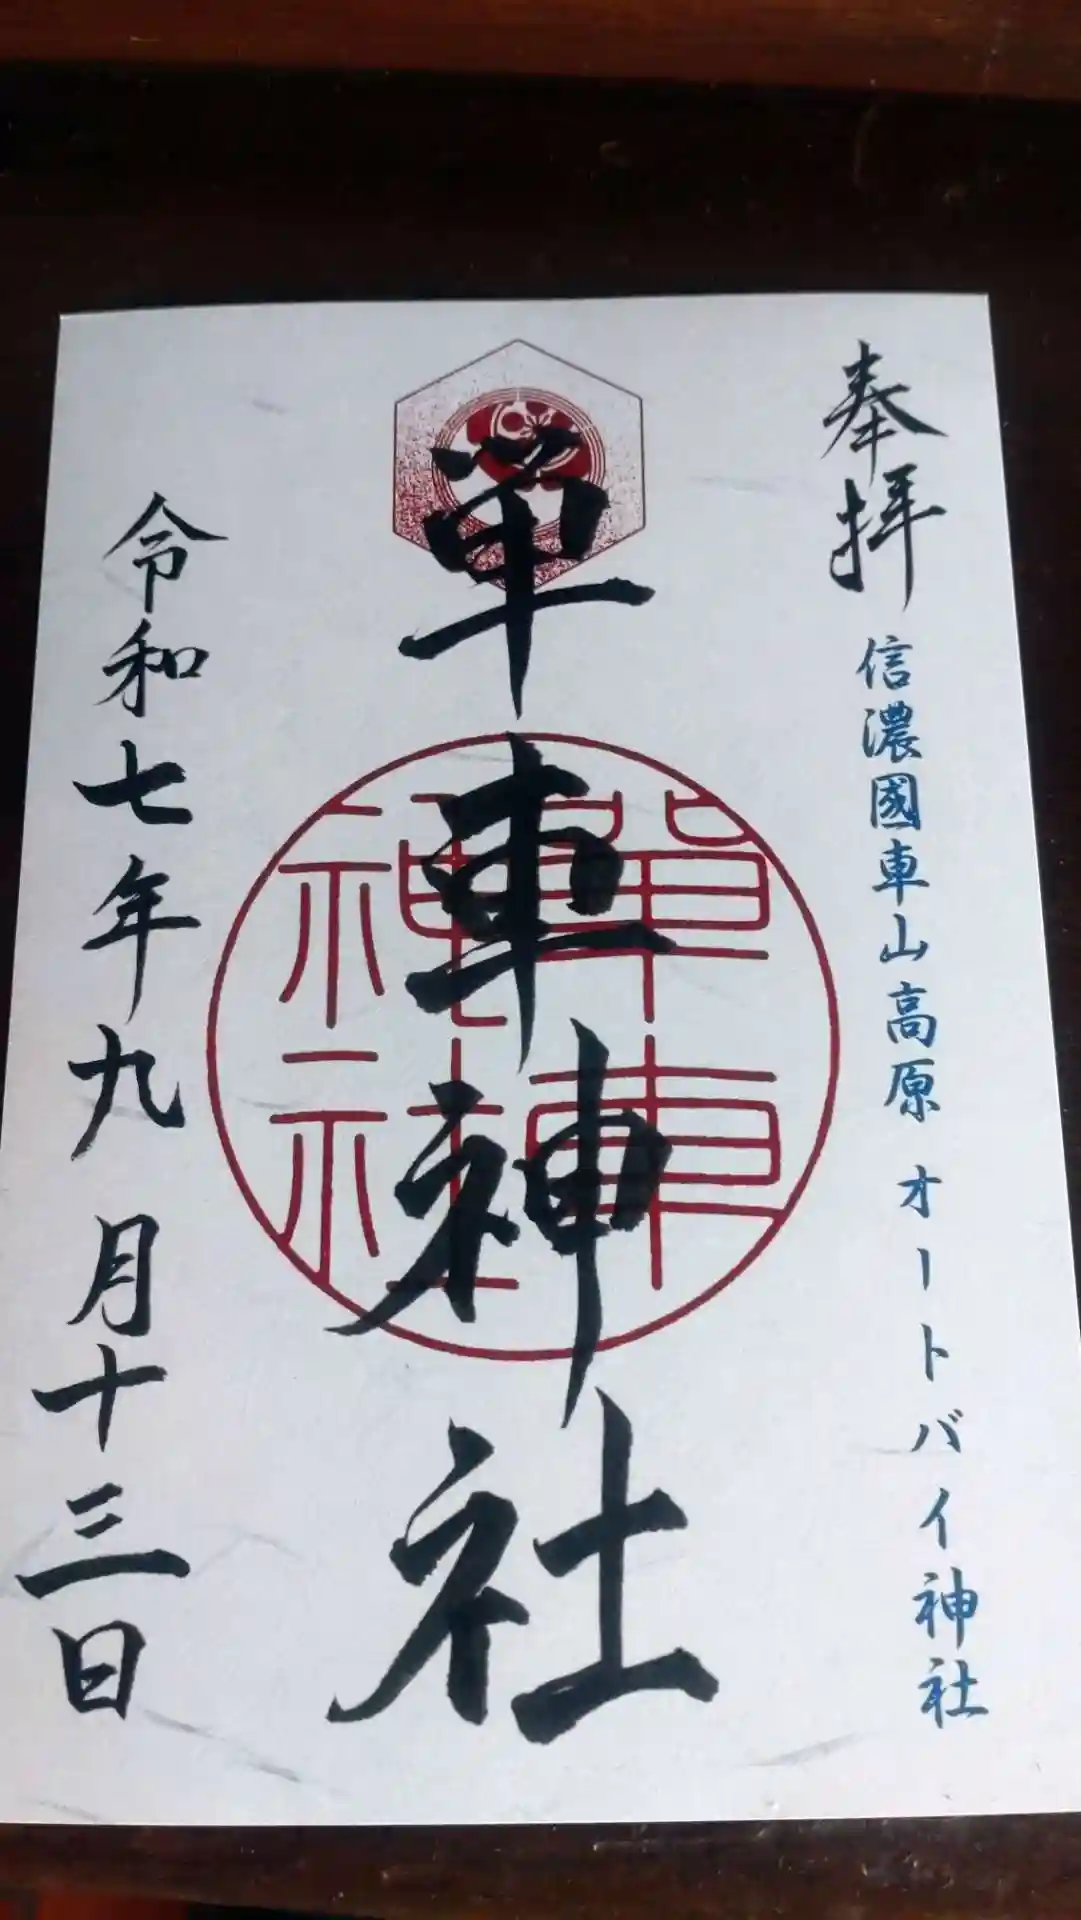 奉拝
信濃國車山高原 オートバイ神社
単車神社
單車神社
令和七年九月十三日